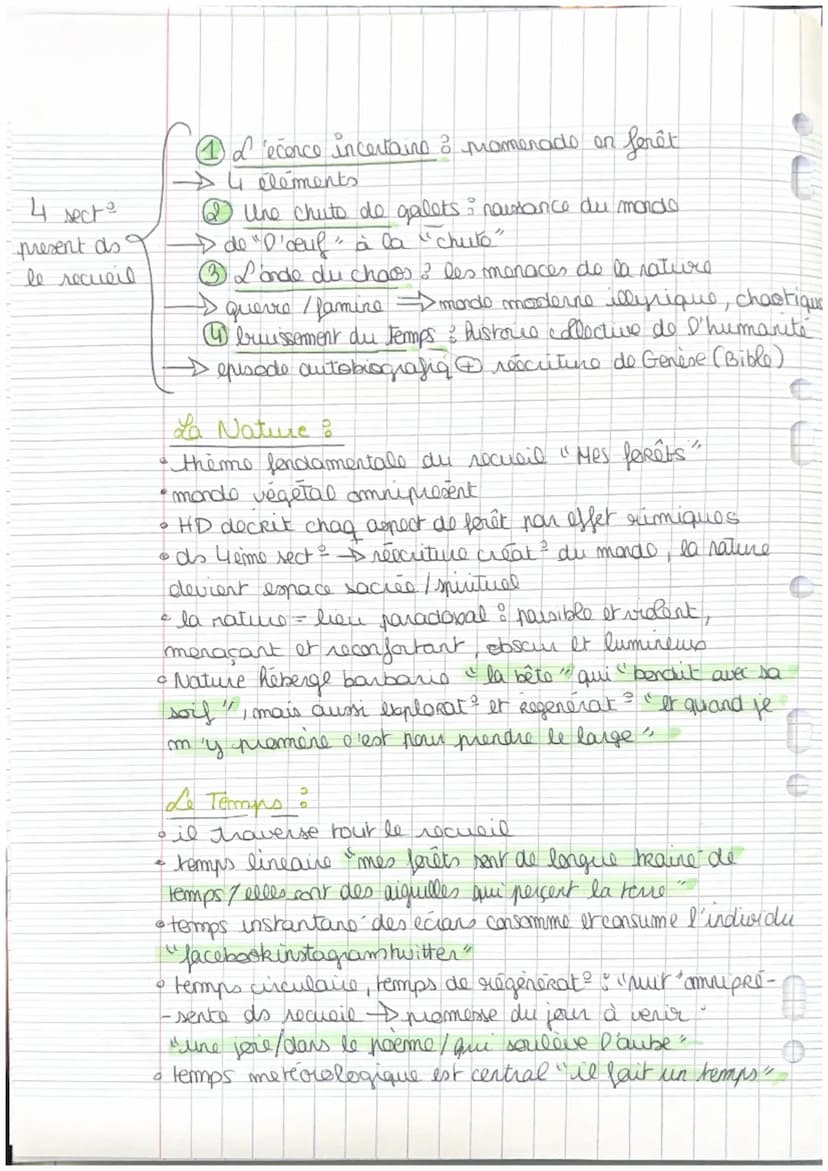 ① L'écorce incertaine : promenade en forêt
→ 4 éléments
② Une chute de galets : naissance du monde
→ de "l'œuf" à la "chute"
③ L'onde du chaos : les menaces de la nature
→ guerre / famine ⇒ monde moderne , chaotique
④ bruissement du temps : histoire collective de l'humanité
→ episode autobiografiq ⊕ réécriture de Genèse (Bible)
4 sect°
present ds
le recueil
La Nature :
• thème fondamentale du recueil "Mes forêts"
• monde végétal omniprésent
• HD decrit chaq aspect de forêt par effet rimiques
• ds 4eime sect° → réécriture créat° du monde, la nature
devient espace sacrée / spirituel
• la nature = lieu paradoxal : paisible et violent,
menaçant et reconfortant, obscur et lumineux
• Nature héberge barbarie "la bête" qui "bondit avec sa
soif", mais aussi explorat° et régénérat° "et quand je
m'y promène c'est pour prendre le large"
Le Temps :
• il traverse tout le recueil
• temps lineaire "mes forêts sont de longue traine de
temps / elles sont des aiguilles qui perçent la terre"
• temps instantané des écrans consomme et consume l'individu
"facebookinstagramtwitter"
• temps circulaire, temps de régénérat° : "nuit" omnipré-
-sente ds recueil → promesse du jour à venir
"une joie/dans le poème/qui soulève l'aube"
• temps météorologique est central "il fait un temps"